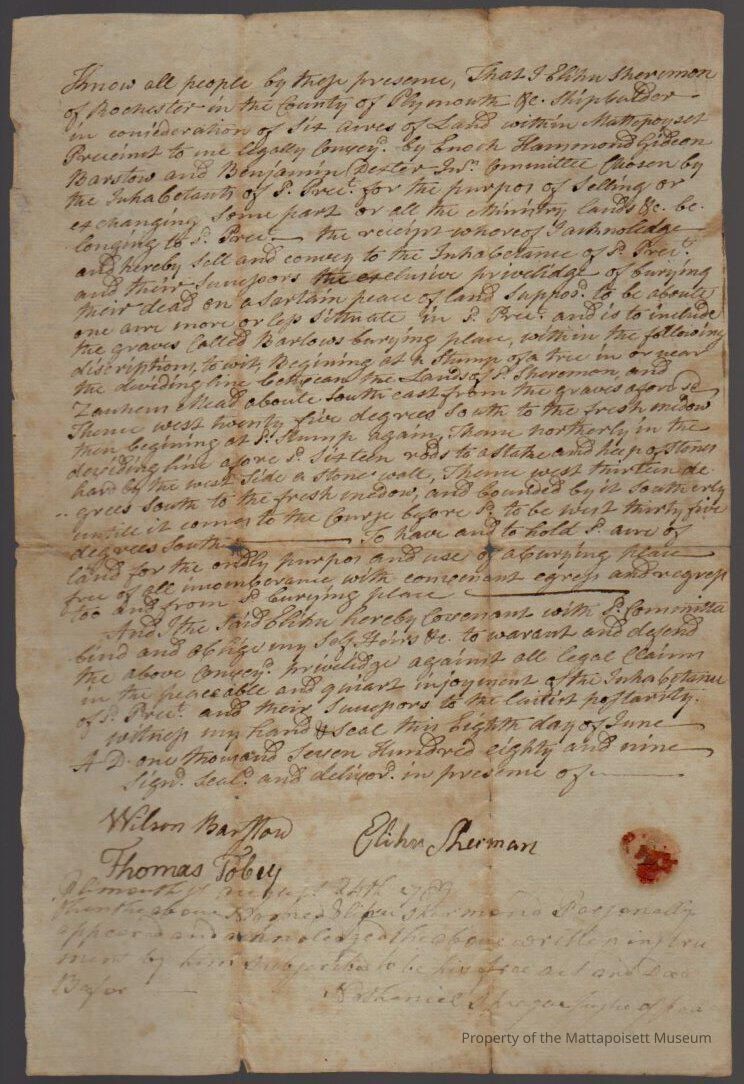 Know all people by these presence, That I Elihu Sheremon
of Rochester in the County of Plymouth &c. Shipbulder
in consideration of Six acres of Land within Mattepoyset
Precinct to me legally Convey'd. by Enoch Hammond Gideon
Barstow and Benjamin Dexter Jnr. Committee Chosen by
the Inhabetants of sd. Prect. for the purpos of Selling or
exchanging some part or all the Ministry lands &c. be-
longing to sd. Prect. the receipt whereof I acknoledge
and hereby Sell and convey to the Inhabetance of sd. Prect.
and their Sucessors the exclusive priveledge of burying
their dead on a sartain peace of land Suppos'd. to be aboute
one acre more or less Situate in sd. Prect. and is to include
the graves Called Barlows burying place, within the following
discription, to wit, Begining at a Stump of a tree in or near
the deviding line between the Lands of sd. Sheremon, and
Mead aboute South east from the graves afore sd
Thence west twenty five degrees South to the fresh medow
then begining at sd. Stump again, Thence northerly in the
deviding line afore sd. Sixteen rods to a Stake and heep of Stones
hard by the west Side a Stone wall, Thence west thirteen de-
grees South to the fresh medow, and bounded by it Southerly
untile it comes to the Course before sd. to be west thirty five
degrees South To have and to hold sd. acre of
land for the ondly purpos and use of a burying place
free of all incomberance with convenant egress and regress
too and from sd. burying place
And I the Said Elihu hereby Covenant with sd. Committe
bind and oblige my Self Heirs &c. to warant and defend
the above Convey'd. priveledge against all legal Claims
in the peaceable and injoyment of the Inhabetance
of sd. Prect. and their Sucessors to the latist postarrity.
witness my hand & Seal this Eighth day of June
A-D. one thousand Seven Hundred eighty and nine
Sign'd. Seal'd. and deliver'd. in presence of
Wilson Barstow Elihu Sherman
Thomas Tobey
Plimouth ss August 24th 1789
then the above Named Elihu Shermond Parsonally
appeared and acknoledged the above written instru
ment by him Subscribed to be his free act and Deed
Before Nathaniel Sprague Justice of peace
Property of the Mattapoisett Museum